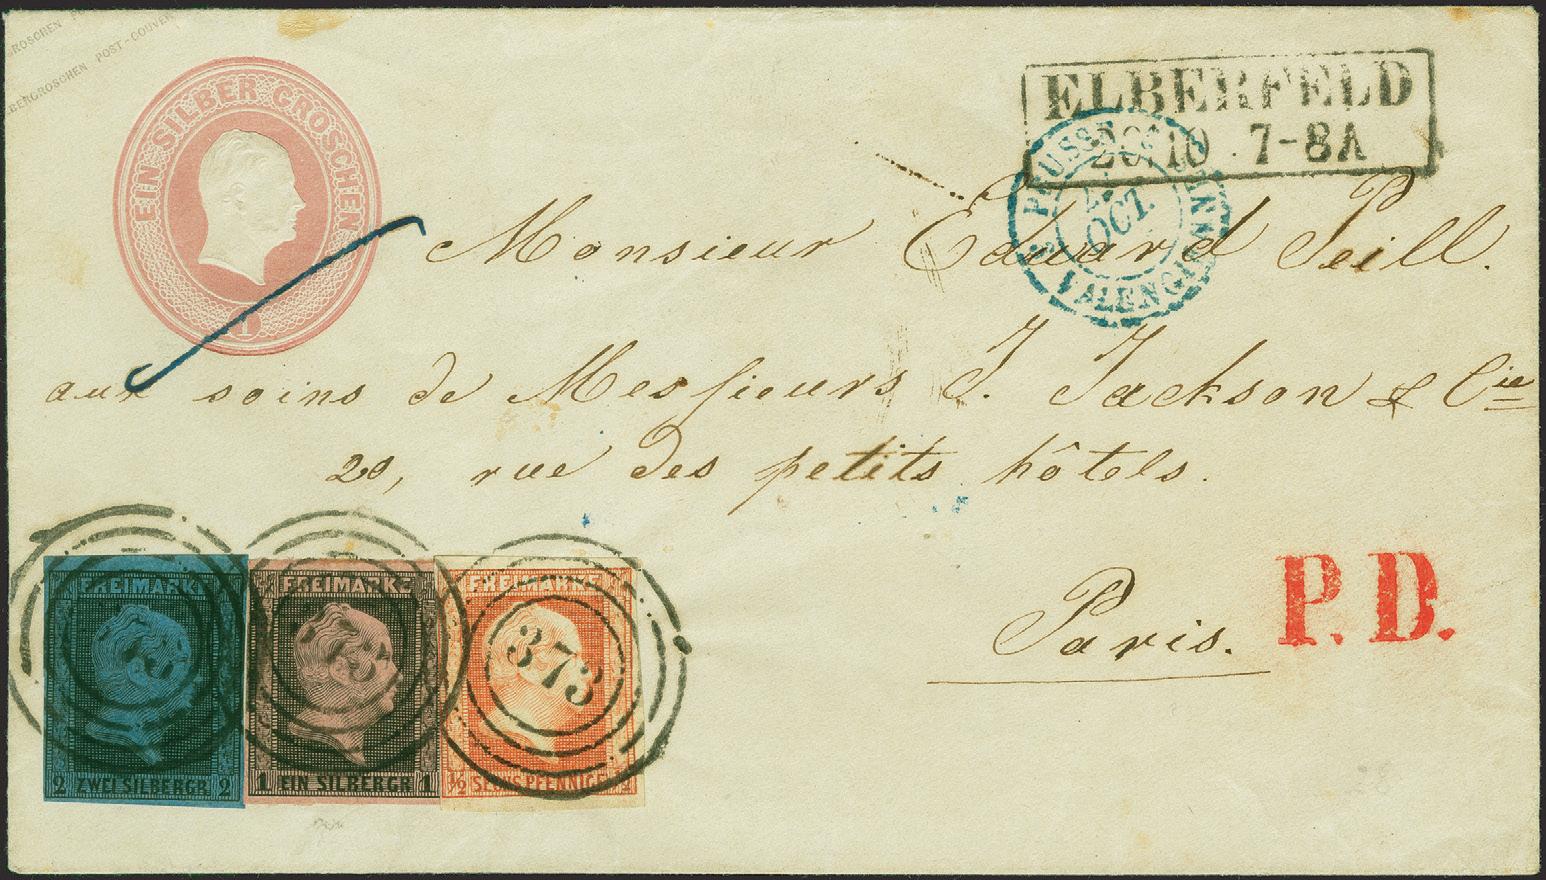 ROSCHEN
BERGROSCHEN POST-COUVER
EIN SILBER GROSCHEN
1
ELBERFELD
20 10 7-8A
PRUSSE
OCT.
VALENCIENNES
Monsieur Eduard Peill.
aux soins de Messieurs J. Jackson & Cie
20, rue des petits hôtels.
Paris.
P.D.
FREIMARKE
2 ZWEI SILBERGR 2
FREIMARKE
1 EIN SILBERGR 1
FREIMARKE
1/2 SECHS PFENNIGE
373